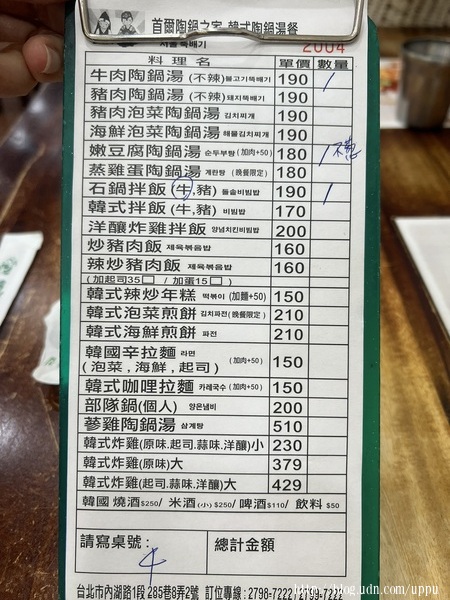 首爾陶鍋之家 韓式陶鍋湯餐
서울 뚝배기
2004
料理名 單價 數量
牛肉陶鍋湯 (不辣) 불고기뚝배기 190 /
豬肉陶鍋湯 (不辣) 돼지뚝배기 190
豬肉泡菜陶鍋湯 김치찌개 190
海鮮泡菜陶鍋湯 해물김치찌개 190
嫩豆腐陶鍋湯 순두부탕 (加肉+50) 180 /
蒸雞蛋陶鍋湯 계란탕 (晚餐限定) 180
石鍋拌飯 (牛,豬) 돌솥비빔밥 190 /
韓式拌飯 (牛,豬) 비빔밥 170
洋釀炸雞拌飯 양념치킨비빔밥 200
炒豬肉飯 제육볶음밥 160
辣炒豬肉飯 제육볶음밥 160
(加起司35□ / 加蛋15□)
韓式辣炒年糕 떡볶이 (加麵+50) 150
韓式泡菜煎餅 김치파전 (晚餐限定) 210
韓式海鮮煎餅 파전 210
韓國辛拉麵 라면 (加肉+50) 150
(泡菜,海鮮,起司)
韓式咖哩拉麵 카레국수 (加肉+50) 150
部隊鍋(個人) 양은냄비 200
蔘雞陶鍋湯 삼계탕 500
韓式炸雞(原味.起司.蒜味.洋釀)小 230
韓式炸雞(原味)大 379
韓式炸雞(起司.蒜味.洋釀)大 429
韓國 燒酒$250/ 米酒(小)$250/ 啤酒$110/ 飲料$50
請寫桌號: 總計金額
4
台北市內湖路1段 285巷8弄2號 訂位專線:2798-7222/2799-7222
http://blog.udn.com/uppu